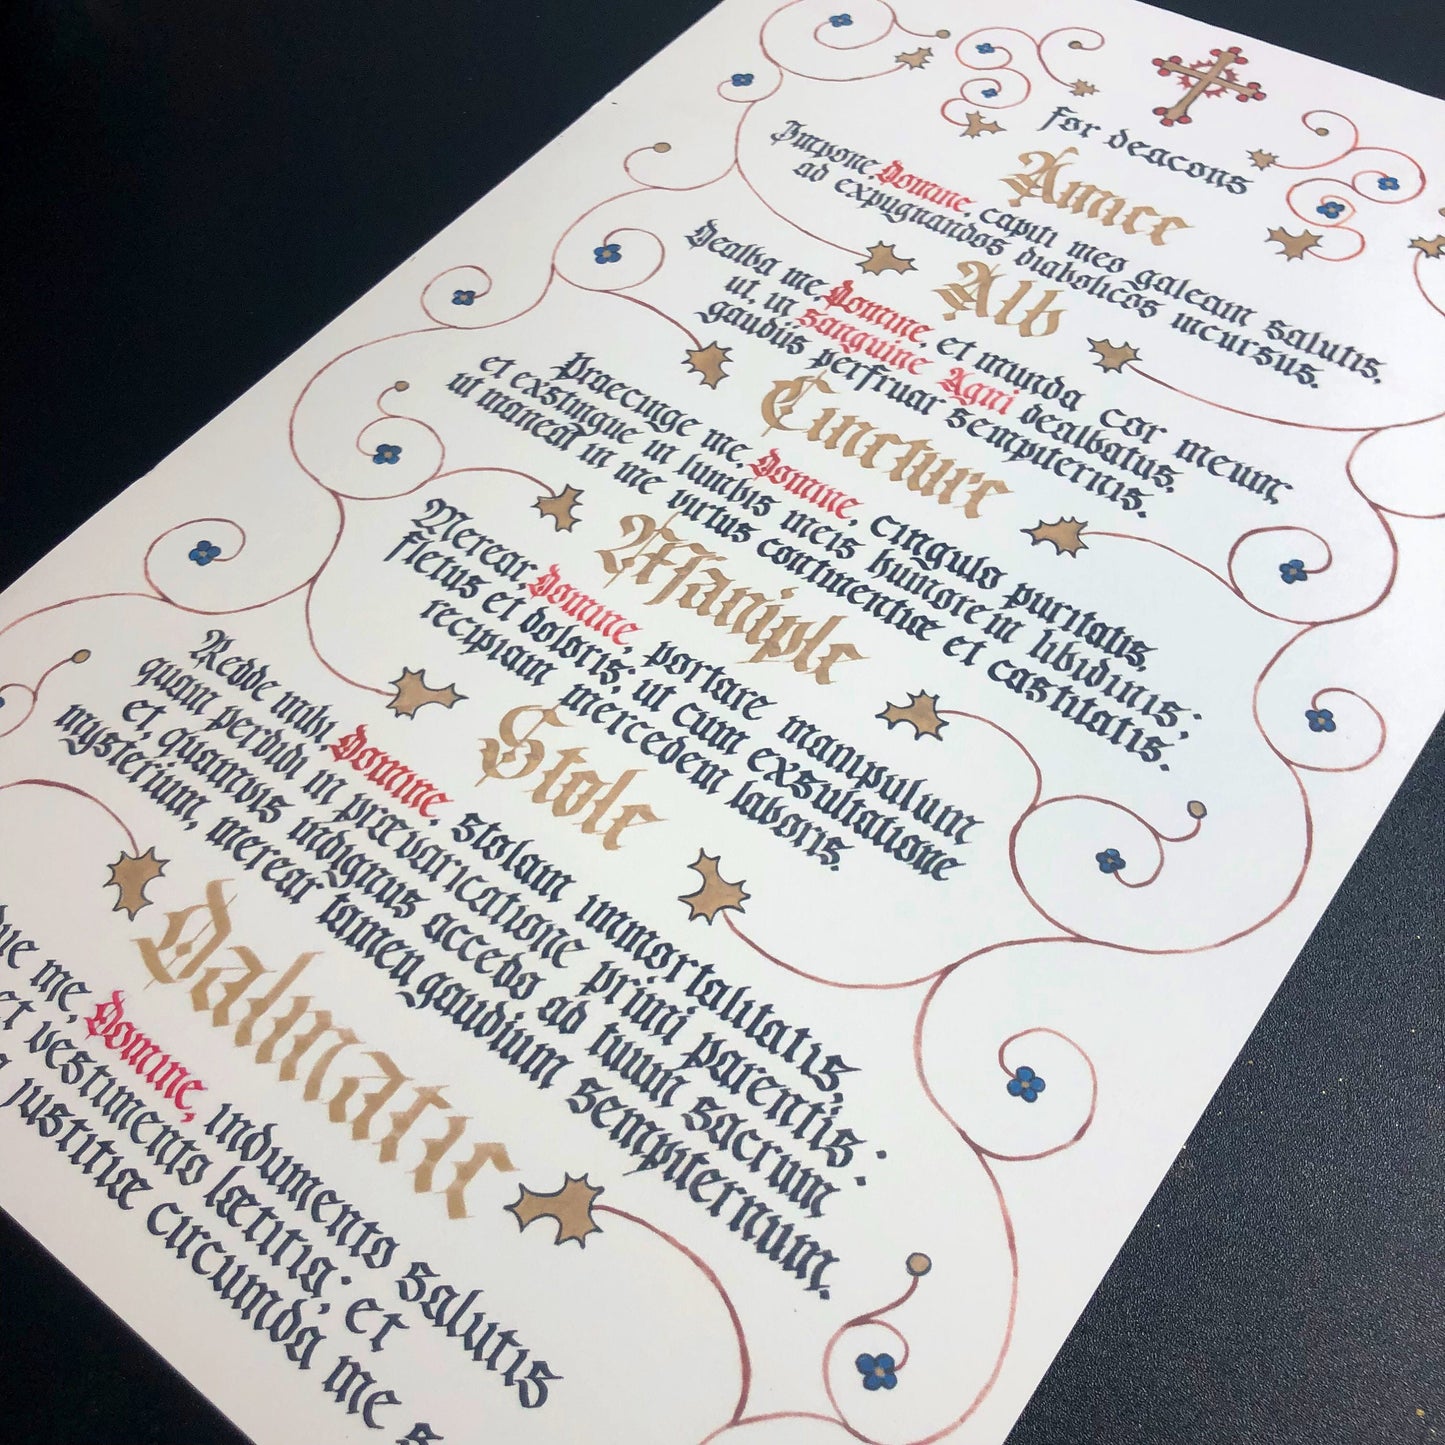 for deacons
Amice
Impone, Domine, capiti meo galeam salutis,
ad expugnandos diabolicos incursus.
Alb
Dealba me, Domine, et munda cor meum;
ut, in sanguine Agni dealbatus,
gaudiis perfruar sempiternis.
Cincture
Praecinge me, Domine, cingulo puritatis,
et exstingue in lumbis meis humorem libidinis;
ut maneat in me virtus continentiæ et castitatis.
Maniple
Merear, Domine, portare manipulum
fletus et doloris; ut cum exsultatione
recipiam mercedem laboris.
Stole
Redde mihi, Domine, stolam immortalitatis,
quam perdidi in prævaricatione primi parentis:
et, quamvis indignus accedo ad tuum sacrum
mysterium, merear tamen gaudium sempiternum.
Dalmatic
me, Domine, indumento salutis
et vestimento lætitia; et
justitiæ circumda me s